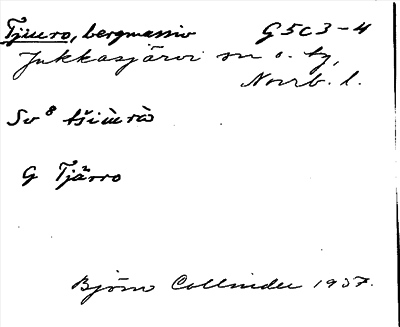 Tjuero, bergmassiv G5c3-4
Jukkasjärvi sn o. tg,
Norrb. l.
Sv⁸
G Tjärro
Björn Collinder 1937.